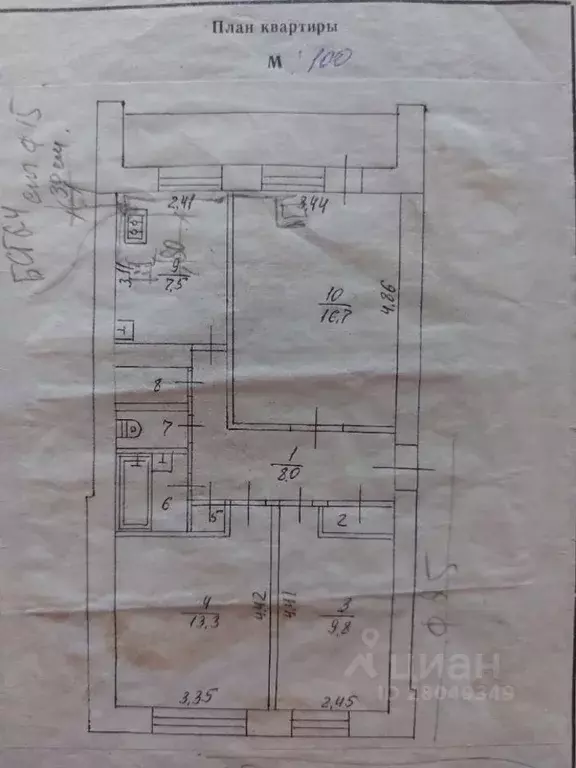 План квартиры
М 1:100
БСГОЧ
ф 15
2,41
3,44
9
7,5
10
16,7
4,86
8
7
1
8,0
6
5
2
4
13,3
4,42
4,41
3
9,8
3,35
2,45
циан
ID 28049349